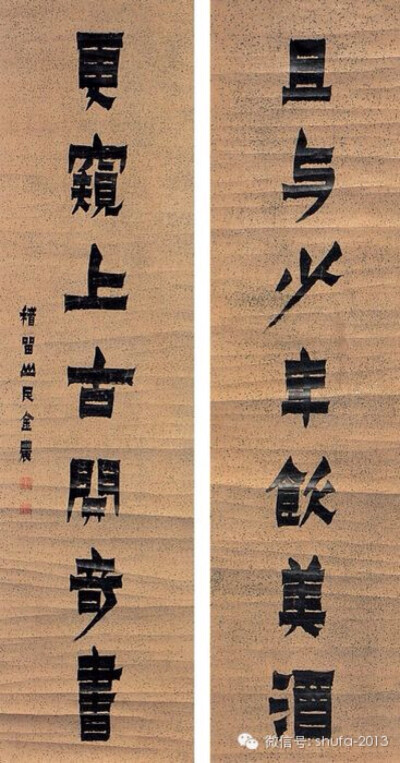 且与少年飲美酒
更窺上古開奇書
稽留山民金農
微信号: shufa-2013